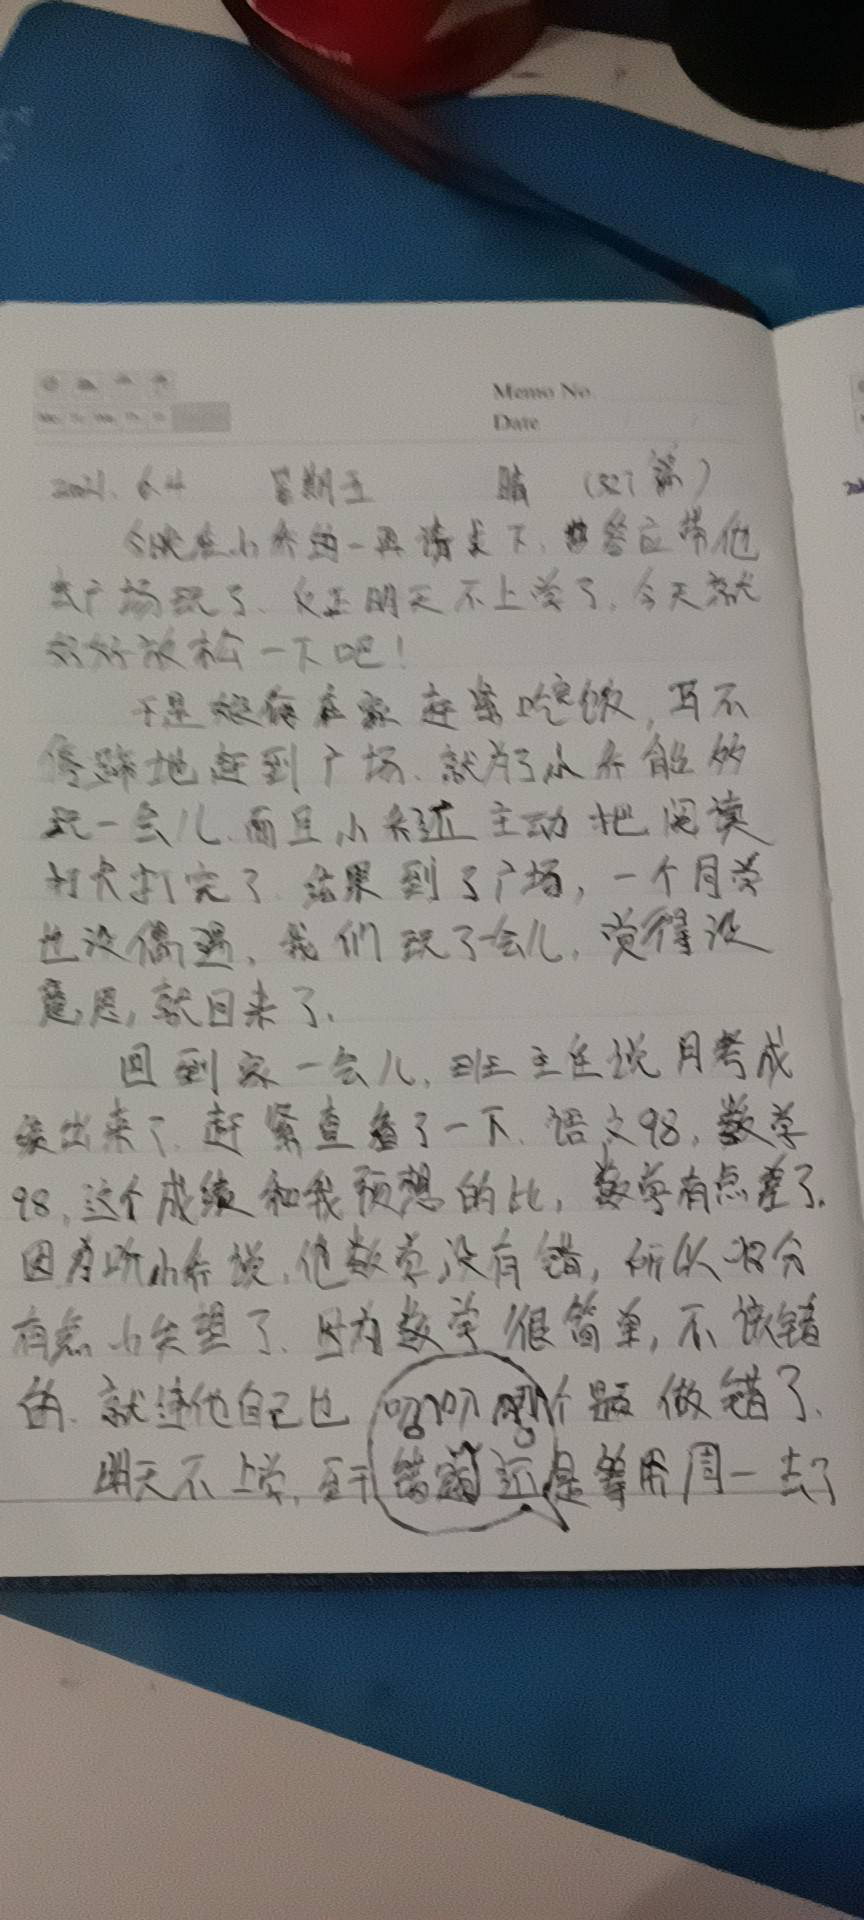 Memo No.
Date
2021.6.4 星期五 晴 (327篇)
今晚在小乔的一再请求下,答应带他
去广场玩了.反正明天不上学了,今天就
好好放松一下吧!
于是 赶紧吃饭,马不
停蹄地赶到广场.就为了小乔能多
玩一会儿.而且小乔 主动把阅读
打卡打完了.结果到了广场,一个同学
也没偶遇,我们玩了一会儿,觉得没
意思,就回来了.
回到家一会儿,班主任说月考成
绩出来了.赶紧查看了一下.语文98,数学
98,这个成绩和我预想的比,数学有点差了.
因为听小乔说,他数学没有错,所以 98分
有点小失望了.因为数学很简单,不该错
的.就连他自己也 哪个题做错了.
明天不上学,至于错题还是等 周一去了